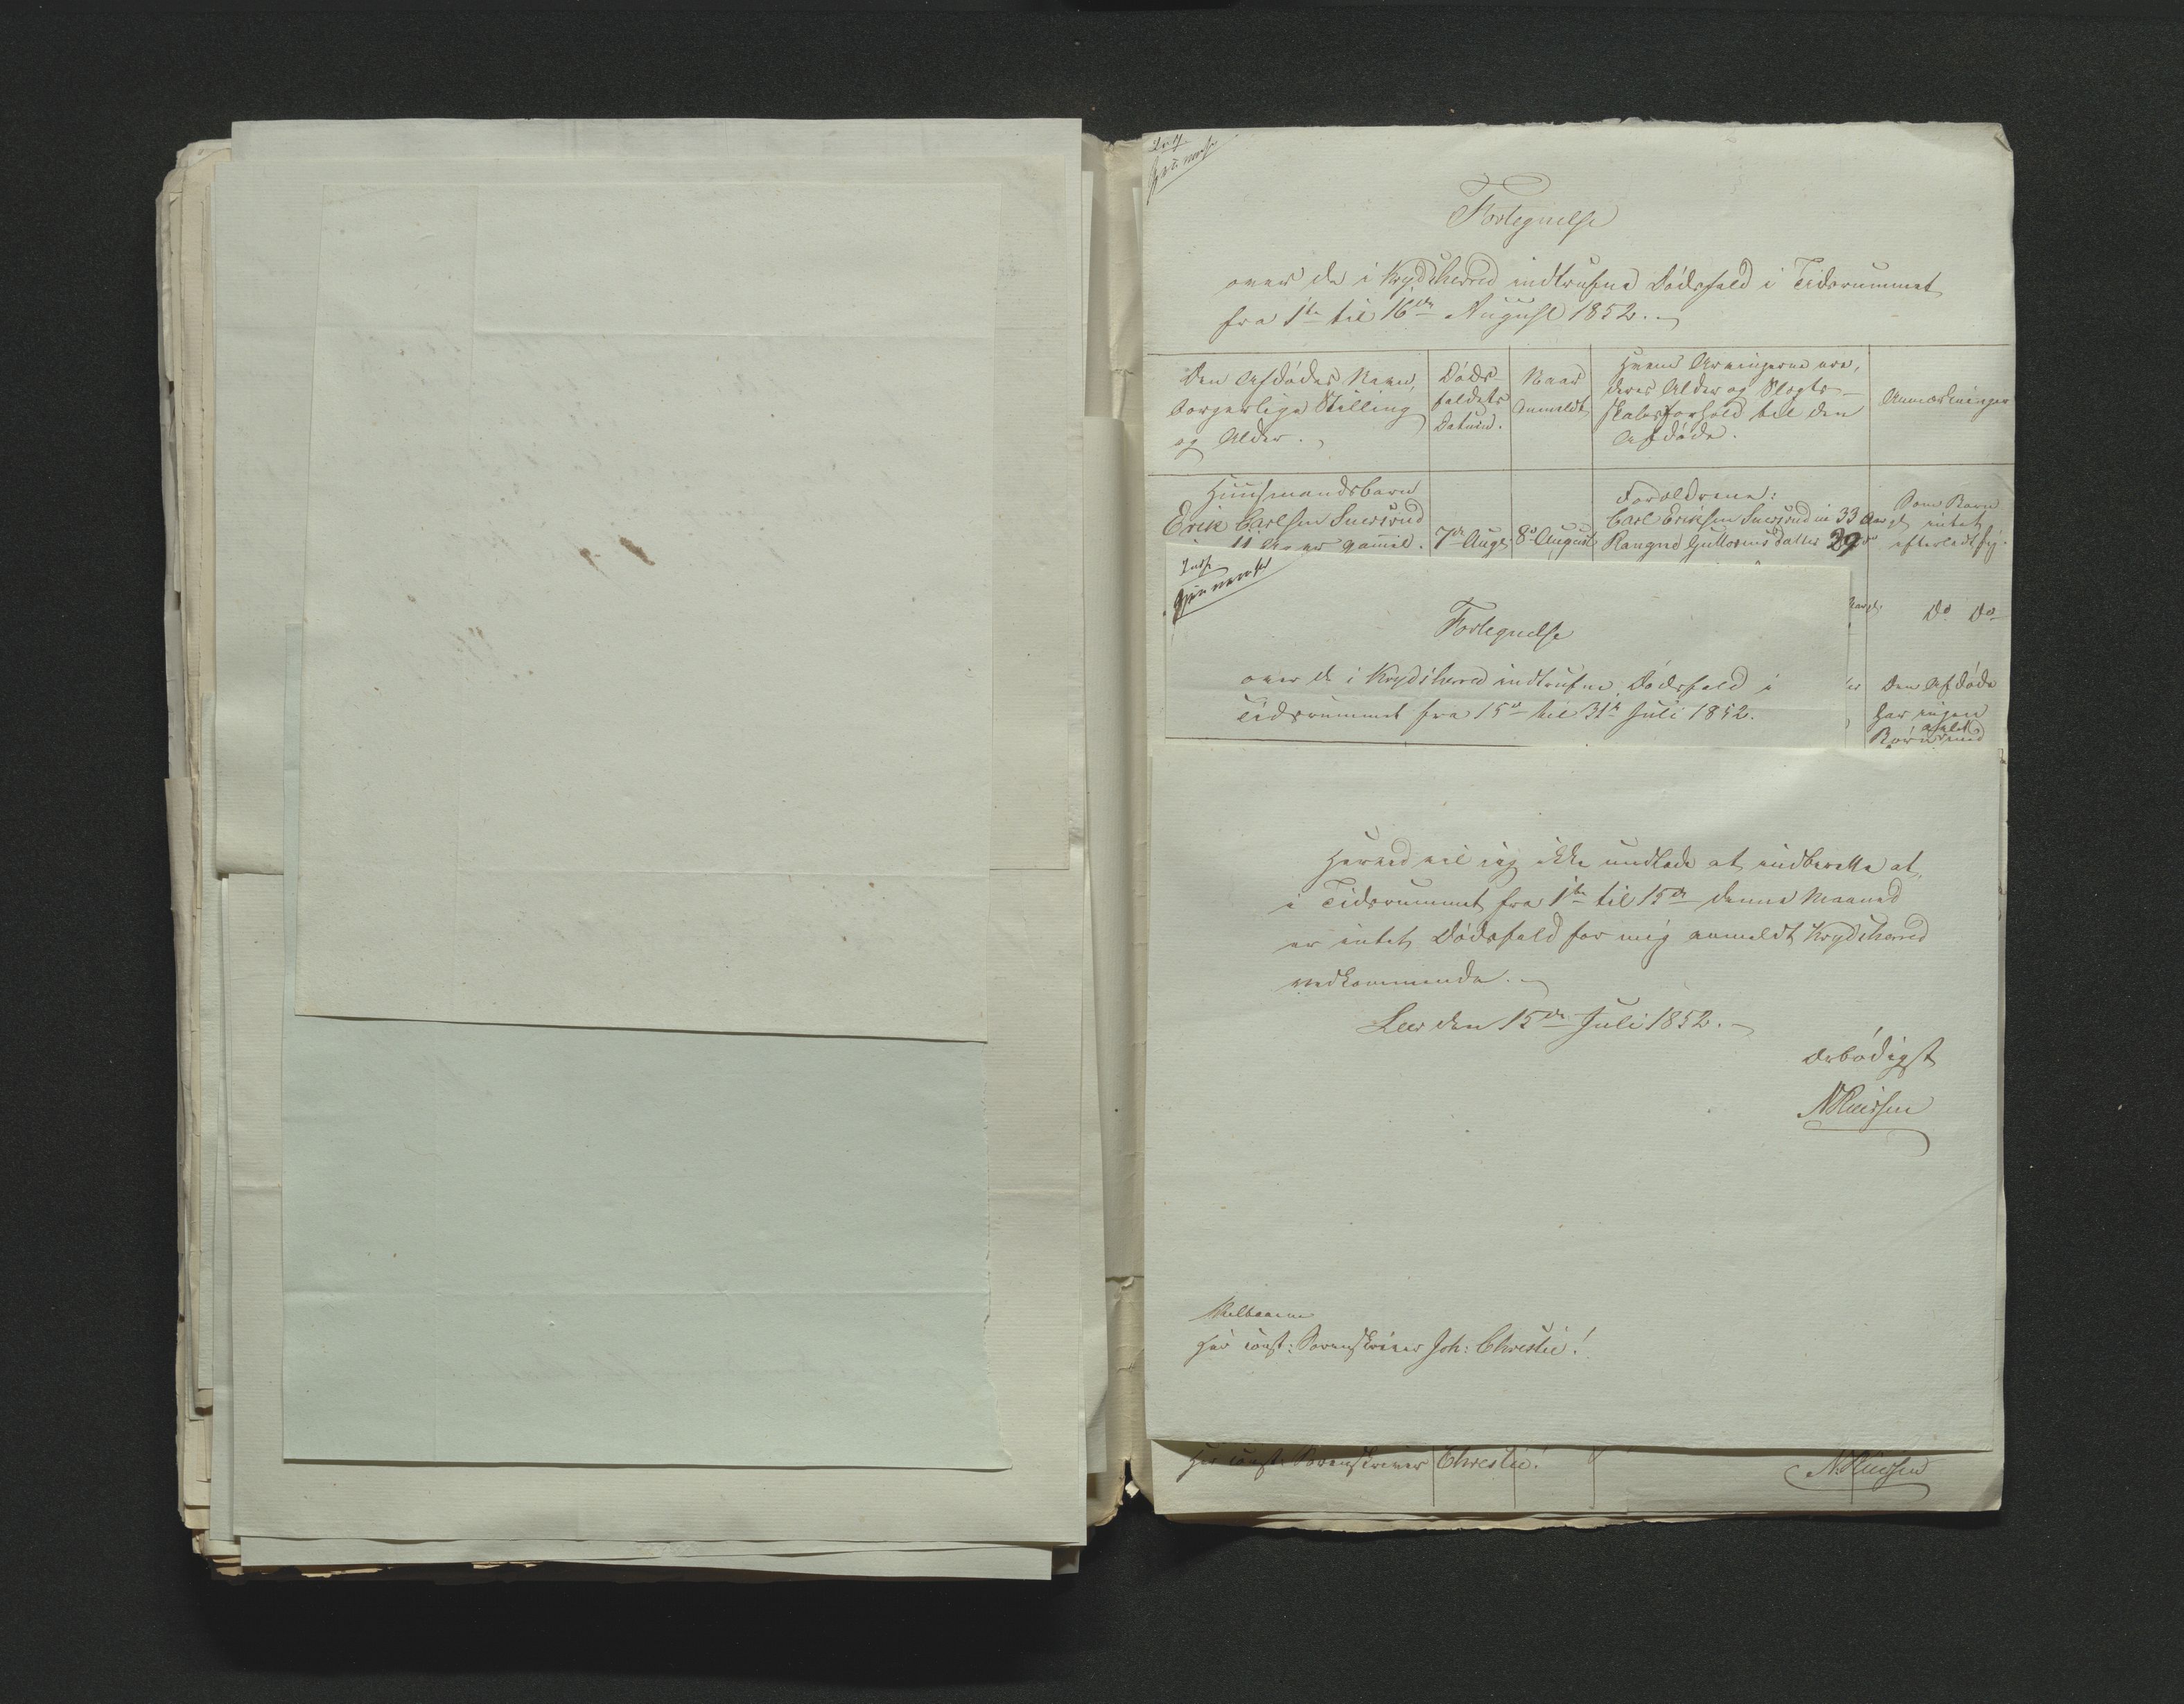 Fortegnelse
over de i Krydsherred indtrufne Dödsfald i Tidsrummet
fra 1ste til 16de August 1852.
Den Afdödes Navn,
borgerlige Stilling
og Alder.
Döds-
faldets
Datum.
Naar
Anmeldt
Hvem Arvingerne ere,
deres Alder og Slægts-
skabsforhold til den
Afdöde.
Anmærkninger
Huusmandsbarn
Erik Carlsen
gammel.
7de Aug:
8de August
Forældrene:
Carl Eriksen 33 Aar
Rangne Guttormsdatter 29
Som Barn
intet
efterladt sig.
Do Do
Den Afdöde
har ingen
Börn
Fortegnelse
over de i Krydsherred indtrufne Dödsfald i
Tidsrummet fra 15de til 31te Juli 1852.
Herved vil jeg ikke undlade at indberette at,
i Tidsrummet fra 1ste til 15de denne Maaned
er intet Dödsfald for mig anmeldt Krydsherred
vedkommende.
Leer den 15de Juli 1852.
Ærbödigst
Velbaarne
Hr const: Sorenskriver Joh: Christie!
Hr const: Sorenskriver Christie!